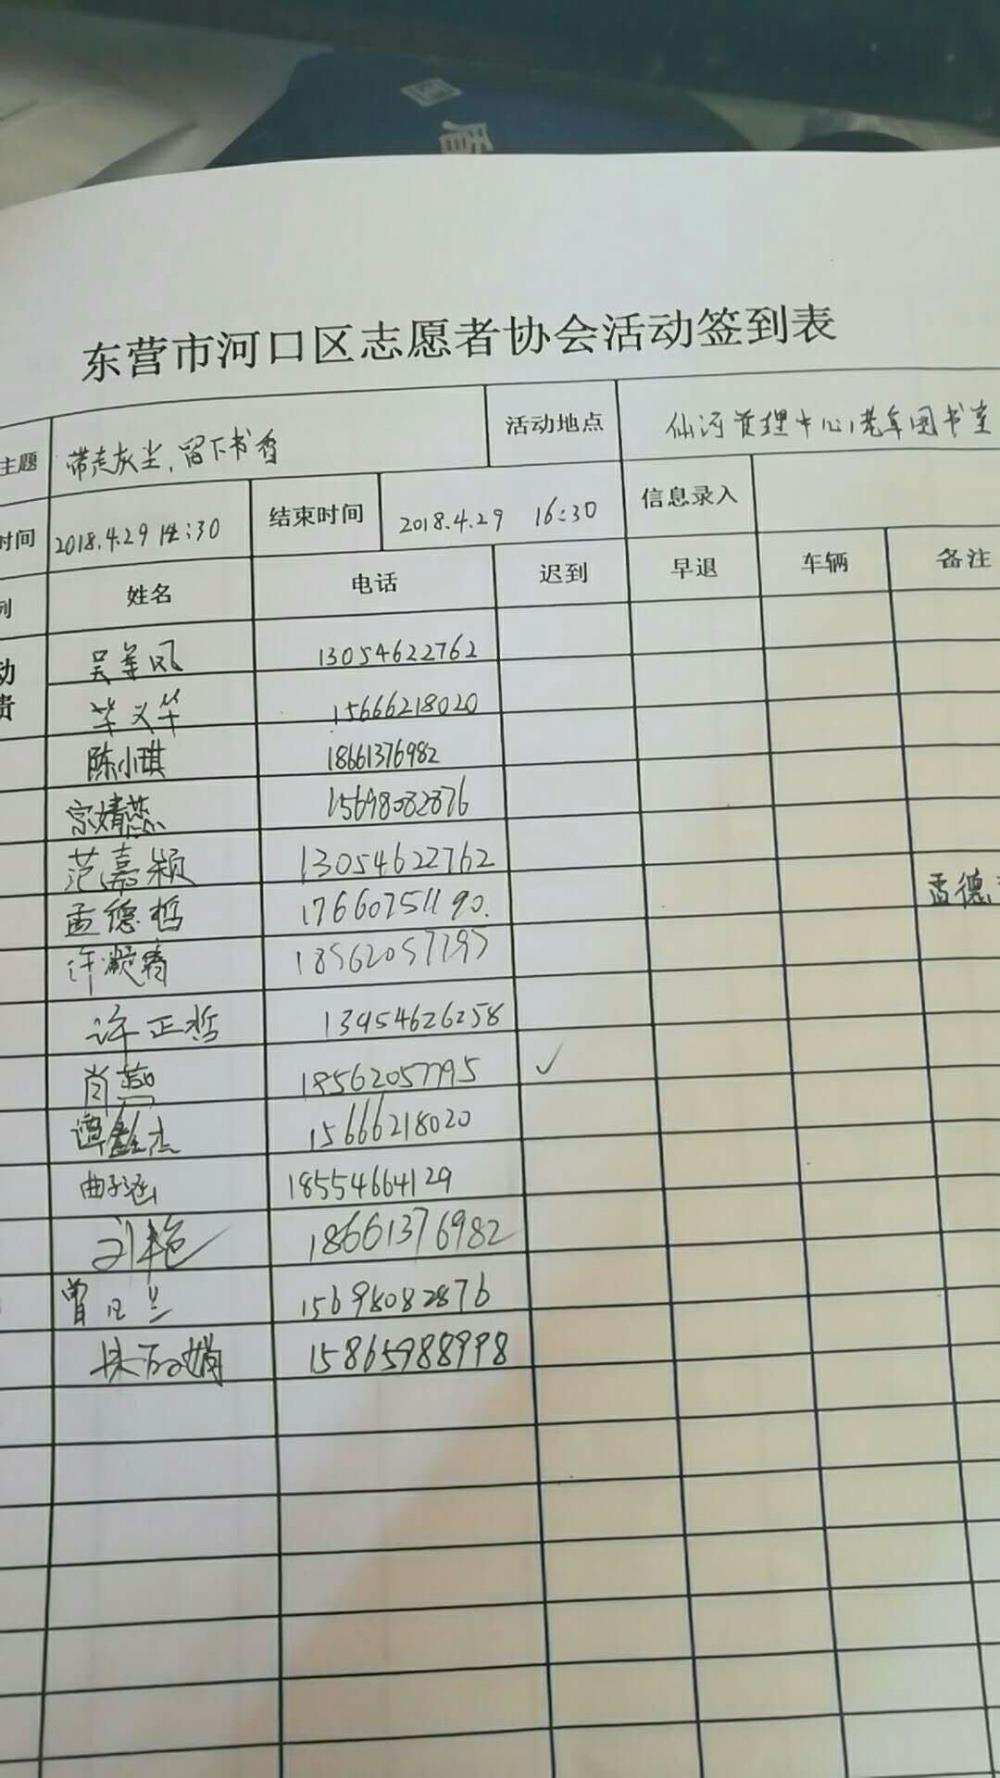 盾
东营市河口区志愿者协会活动签到表
主题 带走灰尘,留下书香 活动地点 仙河管理中心老年图书室
时间 2018.4.29 14:30 结束时间 2018.4.29 16:30 信息录入
列 姓名 电话 迟到 早退 车辆 备注
动
责
吴 凤 13054622762
毕义华 15666218020
陈小琪 18661376982
宗婧蕊 15698082876
范嘉颖 13054622762
孟德哲 17660251190. 孟德
许凝春 18562057795
许正哲 13954626258
肖燕 18562057795 ✓
谭鑫杰 15666218020
曲子涵 18554664129
刘艳 18661376982
曾 兰 15698082876
15865988998